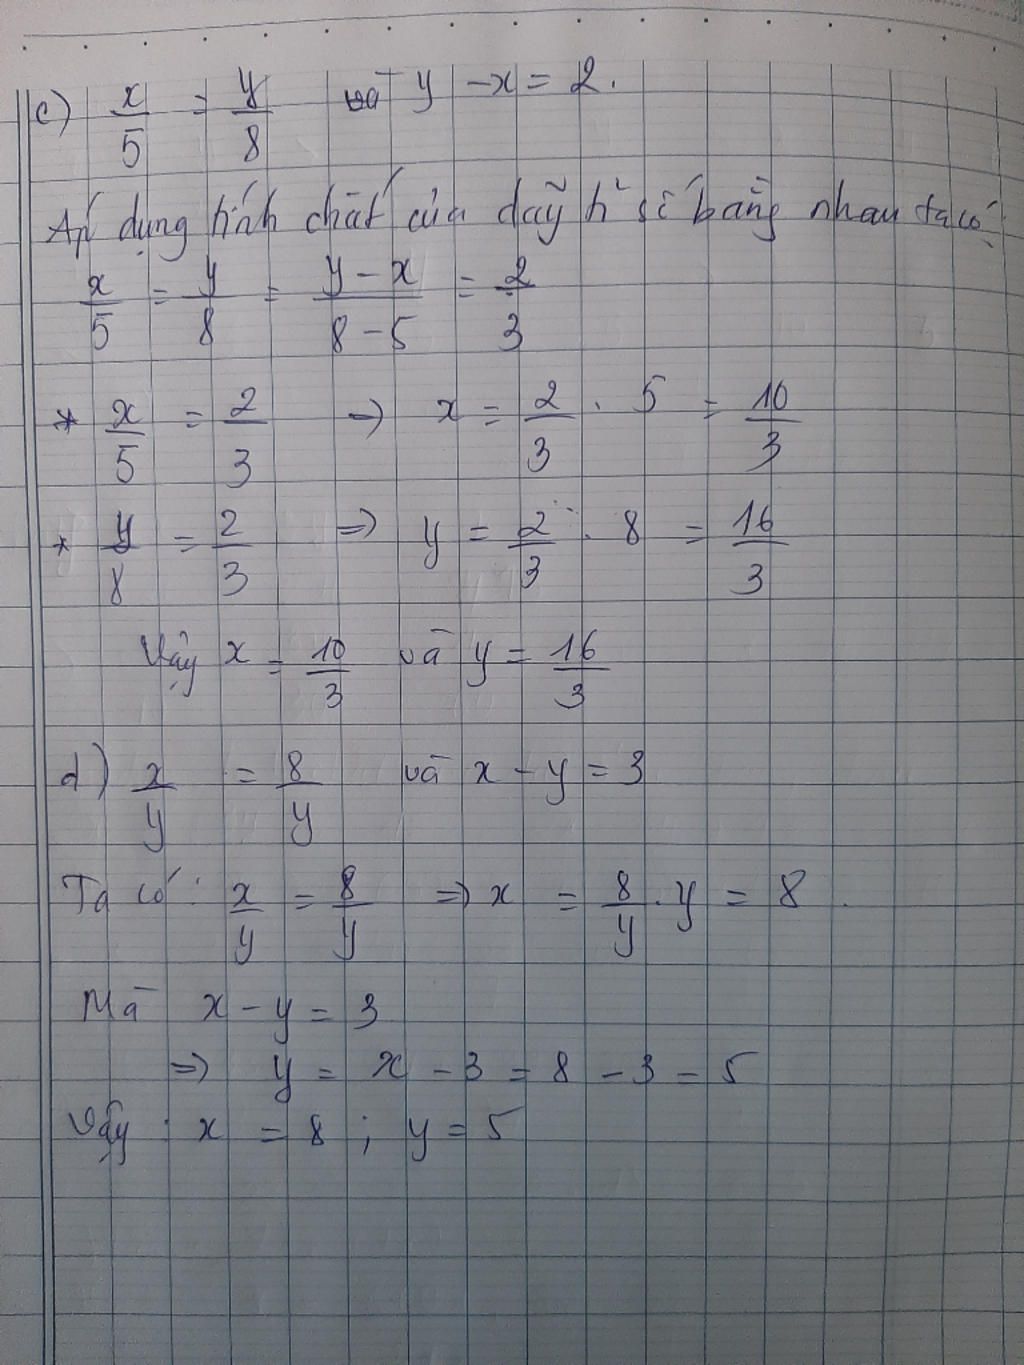 c) x/5 = y/8 và y - x = 2.
Áp dụng tính chất của dãy tỉ số bằng nhau ta có
x/5 = y/8 = (y - x)/(8 - 5) = 2/3
* x/5 = 2/3 => x = 2/3 . 5 = 10/3
* y/8 = 2/3 => y = 2/3 . 8 = 16/3
Vậy x = 10/3 và y = 16/3
d) x/y = 8/y và x - y = 3
Ta có : x/y = 8/y => x = 8/y . y = 8 .
Mà x - y = 3
=> y = x - 3 = 8 - 3 = 5
Vậy : x = 8 ; y = 5